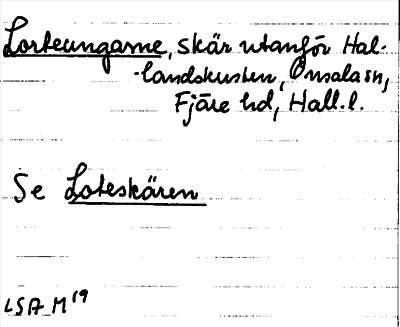 Lorteungarne, skär utanför Hal-
-landskusten, Onsala sn,
Fjäre hd, Hall.l.
Se Loteskären
LSA M 19